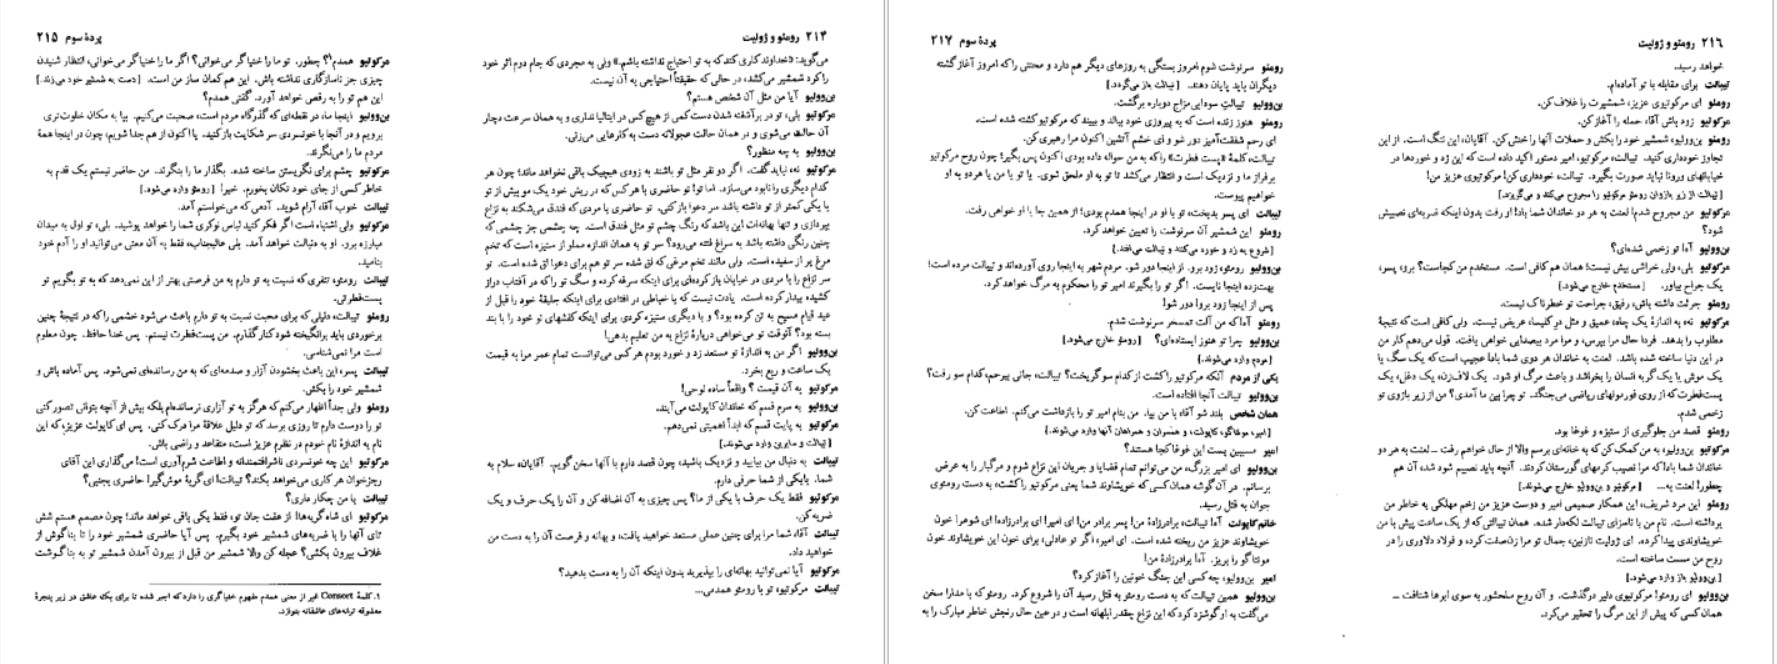 ۲۱۴ رومئو و ژولیت
می‌گوید: «خداوند کاری کند که به تو احتیاج نداشته باشم.» ولی به مجردی که جام دوم اثر خود
را کرد شمشیر می‌کشد، در حالی که حقیقتاً احتیاجی به آن نیست.
بن‌وولیو آیا من مثل آن شخص هستم؟
مرکوتیو بلی، تو در برآشفته شدن دست کمی از هیچ کس در ایتالیا نداری و به همان سرعت دچار
آن حالت می‌شوی و در همان حالت عجولانه دست به کارهایی می‌زنی.
بن‌وولیو به چه منظور؟
مرکوتیو نه، نباید گفت. اگر دو نفر مثل تو باشند به زودی هیچیک باقی نخواهد ماند؛ چون هر
کدام دیگری را نابود می‌سازد. اما تو! تو حاضری با هر کس که در ریش خود یک مو بیش از تو
یا یکی کمتر از تو داشته باشد سر دعوا باز کنی. تو حاضری با مردی که فندق می‌شکند به نزاع
بپردازی و تنها بهانه‌ات این باشد که رنگ چشم تو مثل فندق است. چه چشمی جز چشمی که
چنین رنگی داشته باشد به سراغ فتنه می‌رود؟ سر تو به همان اندازه مملو از ستیزه است که تخم
مرغ پر از سفیده است. ولی مانند تخم مرغی که لق شده سر تو هم برای دعوا لق شده است. تو
سر نزاع را با مردی در خیابان باز کرده‌ای برای اینکه سرفه کرده و سگ تو را که در آفتاب دراز
کشیده بیدار کرده است. یادت نیست که با خیاطی در افتادی برای اینکه جلیقهٔ خود را قبل از
عید قیام مسیح به تن کرده بود؟ و با دیگری ستیزه کردی برای اینکه کفشهای نو خود را با بند
بسته بود؟ آنوقت تو می‌خواهی دربارهٔ نزاع به من تعلیم بدهی!
بن‌وولیو اگر من به اندازهٔ تو مستعد زد و خورد بودم هر کس می‌توانست تمام عمر مرا به قیمت
یک ساعت و ربع بخرد.
مرکوتیو به آن قیمت؟ واقعاً ساده لوحی!
بن‌وولیو به سرم قسم که خاندان کاپولت می‌آیند.
مرکوتیو به پایت قسم که ابداً اهمیتی نمی‌دهم.
[تیبالت و سایرین وارد می‌شوند.]
تیبالت به دنبال من بیایید و نزدیک باشید، چون قصد دارم با آنها سخن گویم. آقایان، سلام به
شما. با یکی از شما حرفی دارم.
مرکوتیو فقط یک حرف با یکی از ما؟ پس چیزی به آن اضافه کن و آن را یک حرف و یک
ضربه کن.
تیبالت آقا، شما مرا برای چنین عملی مستعد خواهید یافت، و بهانه و فرصت آن را به دست من
خواهید داد.
مرکوتیو آیا نمی‌توانید بهانه‌ای را بپذیرید بدون اینکه آن را به دست بدهید؟
تیبالت مرکوتیو، تو با رومئو همدمی...
پردهٔ سوم ۲۱۵
مرکوتیو همدم!۱ چطور. تو ما را خنیاگر می‌خوانی؟ اگر ما را خنیاگر می‌خوانی، انتظار شنیدن
چیزی جز ناسازگاری نداشته باش. این هم کمان ساز من است. [دست به شمشیر خود می‌زند.]
این هم تو را به رقص خواهد آورد. گفتی همدم؟
بن‌وولیو اینجا ما، در نقطه‌ای که گذرگاه مردم است، صحبت می‌کنیم. بیا به مکان خلوت‌تری
برویم و در آنجا با خونسردی سر شکایت باز کنید. یا اکنون از هم جدا شویم، چون در اینجا همهٔ
مردم ما را می‌نگرند.
مرکوتیو چشم برای نگریستن ساخته شده. بگذار ما را بنگرند. من حاضر نیستم یک قدم به
خاطر کسی از جای خود تکان بخورم. خیر! [رومئو وارد می‌شود.]
تیبالت خوب آقا، آرام شوید. آدمی که می‌خواستم آمد.
مرکوتیو ولی اشتباه است اگر فکر کنید لباس نوکری شما را خواهد پوشید. بلی، تو اول به میدان
مبارزه برو. او به دنبالت خواهد آمد. بلی عالیجناب، فقط به آن معنی می‌توانید او را آدم خود
بنامید.
تیبالت رومئو، تنفری که نسبت به تو دارم به من فرصتی بهتر از این نمی‌دهد که به تو بگویم تو
پست‌فطرتی.
رومئو تیبالت، دلیلی که برای محبت نسبت به تو دارم باعث می‌شود خشمی را که در نتیجهٔ چنین
برخوردی باید برانگیخته شود کنار گذارم. من پست‌فطرت نیستم. پس خدا حافظ. چون معلوم
است مرا نمی‌شناسی.
تیبالت پسر، این باعث بخشودن آزار و صدمه‌ای که به من رسانده‌ای نمی‌شود. پس آماده باش و
شمشیر خود را بکش.
رومئو ولی جداً اظهار می‌کنم که هرگز به تو آزاری نرسانده‌ام بلکه بیش از آنچه بتوانی تصور کنی
تو را دوست دارم تا روزی برسد که تو دلیل علاقهٔ مرا درک کنی. پس ای کاپولت عزیز، که این
نام به اندازهٔ نام خودم در نظرم عزیز است، متقاعد و راضی باش.
مرکوتیو این چه خونسردی ناشرافتمندانه و اطاعت شرم‌آوری است! می‌گذاری این آقای
رجزخوان هر کاری می‌خواهد بکند؟ تیبالت! ای گربهٔ موش‌گیر! حاضری بجنبی؟
تیبالت با من چکار داری؟
مرکوتیو ای شاه گربه‌ها! از هفت جان تو، فقط یکی باقی خواهد ماند؛ چون مصمم هستم شش
تای آنها را با ضربه‌های شمشیر خود بگیرم. پس آیا حاضری شمشیر خود را تا بناگوش از
غلاف بیرون بکشی؟ عجله کن والا شمشیر من قبل از بیرون آمدن شمشیر تو به بناگوشت
۱. کلمهٔ Consort غیر از معنی همدم مفهوم خنیاگری را دارد که اجیر شده تا برای یک عاشق در زیر پنجرهٔ
معشوقه ترانه‌های عاشقانه بنوازد.
۲۱۶ رومئو و ژولیت
خواهد رسید.
تیبالت برای مقابله با تو آماده‌ام.
رومئو ای مرکوتیوی عزیز، شمشیرت را غلاف کن.
مرکوتیو زود باش آقا، حمله را آغاز کن.
رومئو بن‌وولیو، شمشیر خود را بکش و حملات آنها را خنثی کن. آقایان، این ننگ است. از این
تجاوز خودداری کنید. تیبالت، مرکوتیو، امیر دستور اکید داده است که این زد و خوردها در
خیابانهای ورونا نباید صورت بگیرد. تیبالت، خودداری کن! مرکوتیوی عزیز من!
[تیبالت از زیر بازوان رومئو مرکوتیو را مجروح می‌کند و می‌گریزد.]
مرکوتیو من مجروح شدم! لعنت به هر دو خاندان شما باد! او رفت بدون اینکه ضربه‌ای نصیبش
شود؟
بن‌وولیو آه! تو زخمی شده‌ای؟
مرکوتیو بلی، ولی خراشی بیش نیست؛ همان هم کافی است. مستخدم من کجاست؟ برو، پسر،
یک جراح بیاور. [مستخدم خارج می‌شود.]
رومئو جرئت داشته باش، رفیق، جراحت تو خطرناک نیست.
مرکوتیو نه، به اندازهٔ یک چاه، عمیق و مثل در کلیسا، عریض نیست. ولی کافی است که نتیجهٔ
مطلوب را بدهد. فردا حال مرا بپرس، و مرا مرد بیصدایی خواهی یافت. قول می‌دهم کار من
در این دنیا ساخته شده باشد. لعنت به خاندان هر دوی شما باد! عجیب است که یک سگ یا
یک موش یا یک گربه انسان را بخراشد و باعث مرگ او شود. یک لاف‌زن، یک دغل، یک
پست‌فطرت که از روی فورمولهای ریاضی می‌جنگد. تو چرا بین ما آمدی؟ من از زیر بازوی تو
زخمی شدم.
رومئو قصد من جلوگیری از ستیزه و غوغا بود.
مرکوتیو بن‌وولیو، به من کمک کن که به خانه‌ای برسم والا از حال خواهم رفت ــ لعنت به هر دو
خاندان شما باد! که مرا نصیب کرمهای گورستان کردند. آنچه باید نصیبم شود شد، آن هم
چطور! لعنت به... [مرکوتیو و بن‌وولیو خارج می‌شوند.]
رومئو این مرد شریف، این همکار صمیمی امیر و دوست عزیز من زخم مهلکی به خاطر من
برداشته است. نام من با ناسزای تیبالت لکه‌دار شده. همان تیبالتی که از یک ساعت پیش با من
خویشاوندی پیدا کرده. ای ژولیت نازنین، جمال تو مرا زن‌صفت کرده و فولاد دلاوری را در
روح من سست ساخته است.
[بن‌وولیو باز وارد می‌شود.]
بن‌وولیو ای رومئو! مرکوتیوی دلیر درگذشت. و آن روح سلحشور به سوی ابرها شتافت ــ
همان کسی که پیش از این مرگ را تحقیر می‌کرد.
پردهٔ سوم ۲۱۷
رومئو سرنوشت شوم امروز بستگی به روزهای دیگر هم دارد و محنتی را که امروز آغاز گشته
دیگران باید پایان دهند. [تیبالت باز می‌گردد.]
بن‌وولیو تیبالت سودایی‌مزاج دوباره برگشت.
رومئو هنوز زنده است که به پیروزی خود ببالد و ببیند که مرکوتیو کشته شده است.
ای رحم شفقت‌آمیز دور شو و ای خشم آتشین اکنون مرا رهبری کن.
تیبالت، کلمهٔ «پست فطرت» را که به من حواله داده بودی اکنون پس بگیر! چون روح مرکوتیو
بر فراز ما و نزدیک است و انتظار می‌کشد تا تو به او ملحق شوی. یا تو یا من یا هر دو به او
خواهیم پیوست.
تیبالت ای پسر بدبخت، تو با او در اینجا همدم بودی؛ از همین جا با او خواهی رفت.
رومئو این شمشیر آن سرنوشت را تعیین خواهد کرد.
[شروع به زد و خورد می‌کنند و تیبالت می‌افتد.]
بن‌وولیو رومئو، زود برو. از اینجا دور شو. مردم شهر به اینجا روی آورده‌اند و تیبالت مرده است!
بهت‌زده اینجا نایست. اگر تو را بگیرند امیر تو را محکوم به مرگ خواهد کرد.
پس از اینجا زود برو! دور شو!
رومئو آه! که من آلت تمسخر سرنوشت شدم.
بن‌وولیو چرا تو هنوز ایستاده‌ای؟ [رومئو خارج می‌شود.]
[مردم وارد می‌شوند.]
یکی از مردم آنکه مرکوتیو را کشت از کدام سو گریخت؟ تیبالت، جانی بیرحم، کدام سو رفت؟
بن‌وولیو تیبالت آنجا افتاده است.
همان شخص بلند شو آقا، با من بیا. من بنام امیر تو را بازداشت می‌کنم. اطاعت کن.
[امیر، مونتاگو، کاپولت، و همسران و همراهان آنها وارد می‌شوند.]
امیر مسببین پست این غوغا کجا هستند؟
بن‌وولیو ای امیر بزرگ، من می‌توانم تمام قضایا و جریان این نزاع شوم و مرگبار را به عرض
برسانم. در آن گوشه همان کسی که خویشاوند شما یعنی مرکوتیو را کشت، به دست رومئوی
جوان به قتل رسید.
خانم کاپولت آه! تیبالت، برادرزادهٔ من! پسر برادر من! ای امیر! ای برادرزاده! ای شوهر! خون
خویشاوند عزیز من ریخته شده است. ای امیر، اگر تو عادلی، برای خون این خویشاوند خون
مونتاگو را بریز. آه! برادرزادهٔ من!
امیر بن‌وولیو، چه کسی این جنگ خونین را آغاز کرد؟
بن‌وولیو همین تیبالت که به دست رومئو به قتل رسید آن را شروع کرد. رومئو که با مدارا سخن
می‌گفت به او گوشزد کرد که این نزاع چقدر ابلهانه است و در عین حال رنجش خاطر مبارک را به